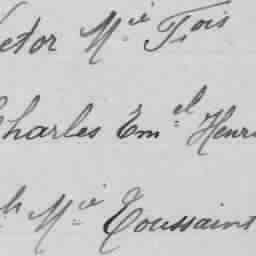 ctor Mie Fois
Charles Emel Henri
h Mie Toussaint